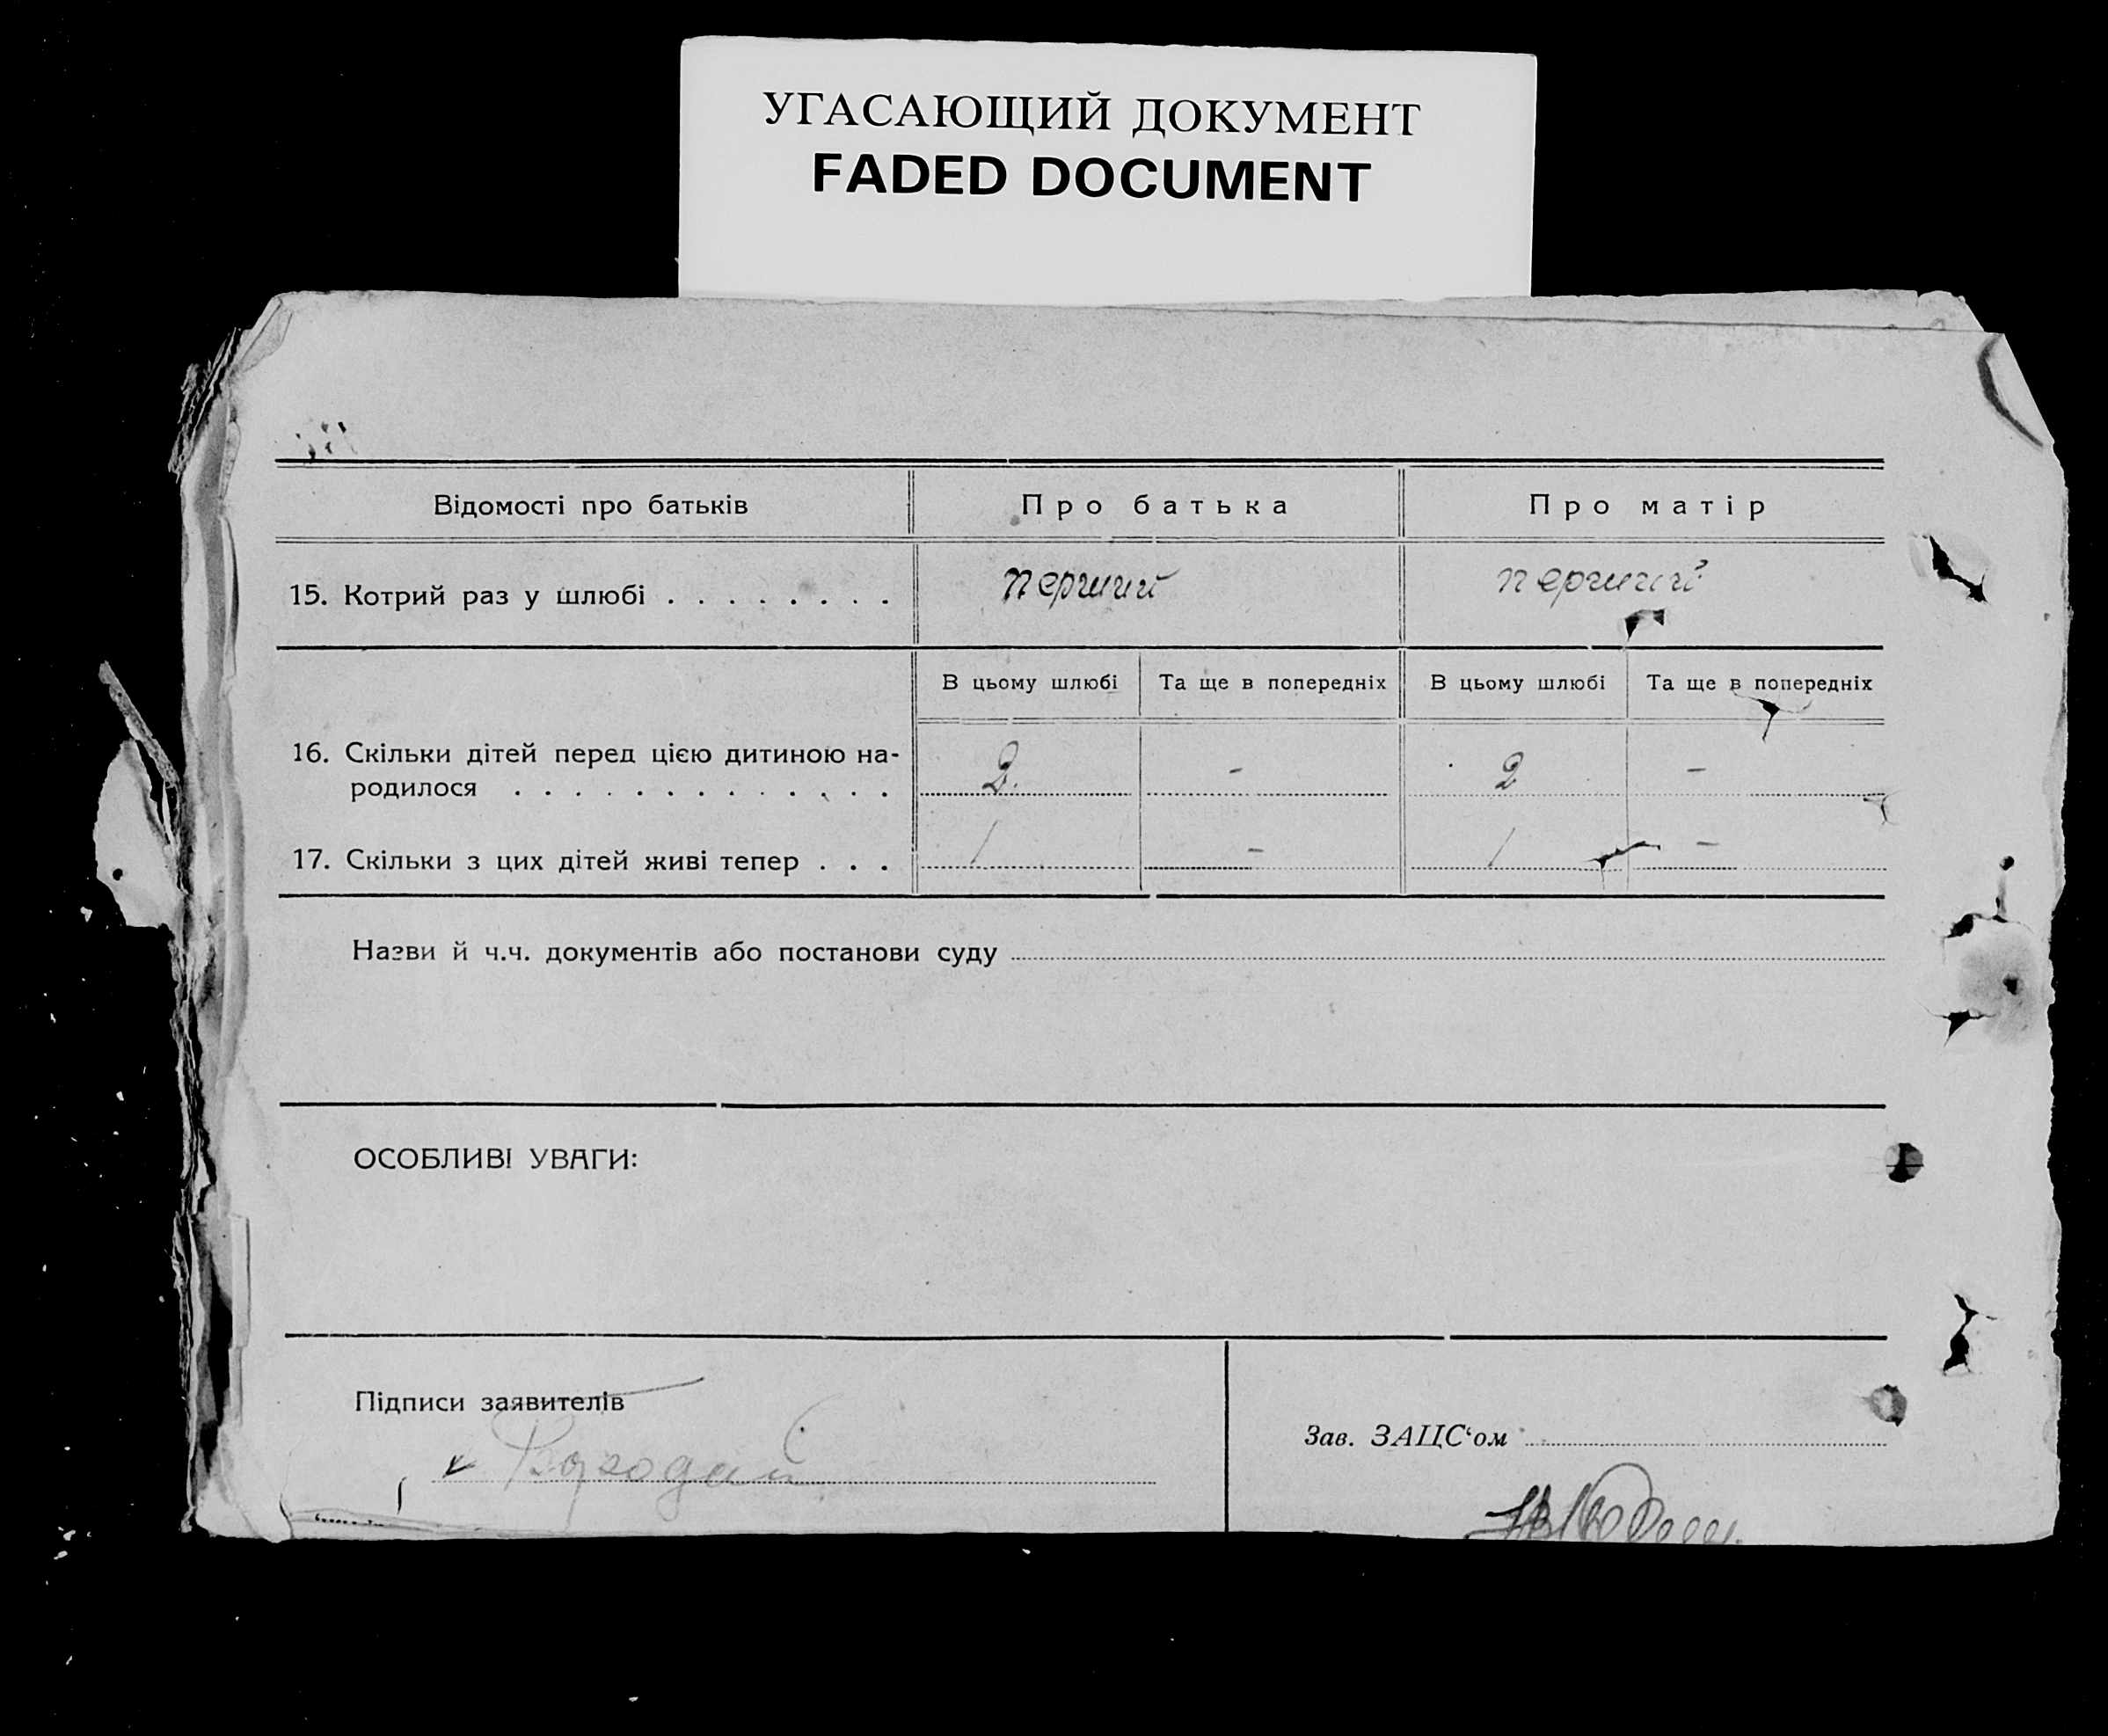 УГАСАЮЩИЙ ДОКУМЕНТ
FADED DOCUMENT
Відомості про батьків Про батька Про матір
15. Котрий раз у шлюбі . . . . . . . . перший перший
В цьому шлюбі Та ще в попередніх В цьому шлюбі Та ще в попередніх
16. Скільки дітей перед цією дитиною на-
родилося . . . . . . . . . . . . . 2 - 2 -
17. Скільки з цих дітей живі тепер . . . 1 - 1 -
Назви й ч.ч. документів або постанови суду
ОСОБЛИВІ УВАГИ:
Підписи заявителів
Зав. ЗАЦС‘ом